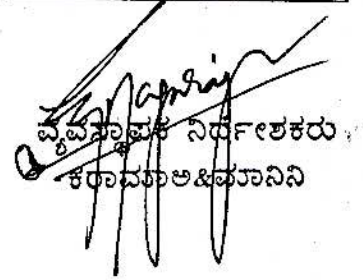 ವ್ಯವಸ್ಥಾಪಕ ನಿರ್ದೇಶಕರು
ಕರಾವಮಾಅಹಿಮಾನಿನಿ